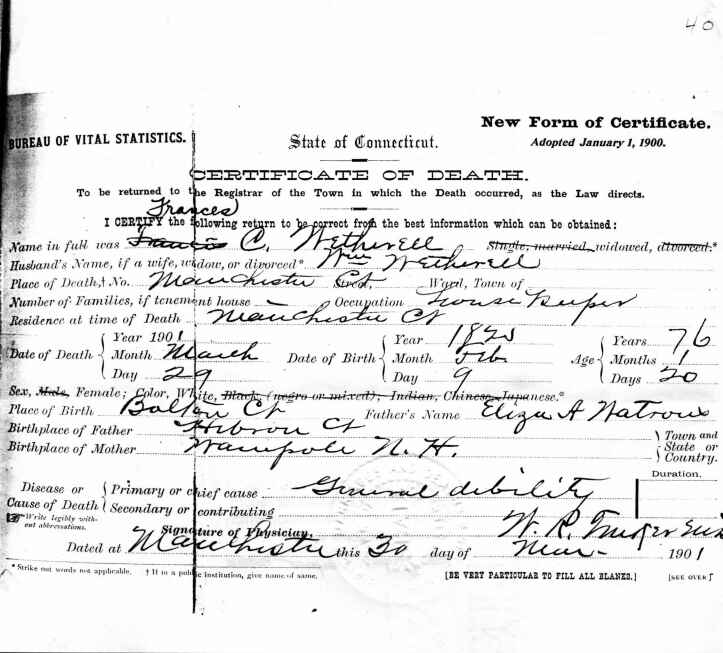 40
New Form of Certificate.
Adopted January 1, 1900.
BUREAU OF VITAL STATISTICS.
State of Connecticut.
CERTIFICATE OF DEATH.
To be returned to the Registrar of the Town in which the Death occurred, as the Law directs.
Frances
I CERTIFY the following return to be correct from the best information which can be obtained:
Name in full was Francis C. Wetherell Single, married, widowed, divorced.*
Husband's Name, if a wife, widow, or divorced* Wm Wetherell
Place of Death,† No. Manchester Ct Street, Ward, Town of
Number of Families, if tenement house – Occupation House Keeper
Residence at time of Death Manchester Ct
Date of Death { Year 1901 Date of Birth { Year 1825 Age { Years 76
Month March Month Feb Months 1
Day 29 Day 9 Days 20
Sex, Male, Female; Color, White, Black, (negro or mixed), Indian, Chinese, Japanese.*
Place of Birth Bolton Ct Father's Name Eliza A Watrous
Birthplace of Father Hebron Ct
Birthplace of Mother Wampole N. H.
} Town and State or Country.
Duration.
Disease or Cause of Death { Primary or chief cause General debility
Secondary or contributing
☞ Write legibly without abbreviations.
Signature of Physician, W. R.
Dated at Manchester this 30 day of Mar- 1901
* Strike out words not applicable. † If in a public institution, give name of same. [BE VERY PARTICULAR TO FILL ALL BLANKS.] [SEE OVER]